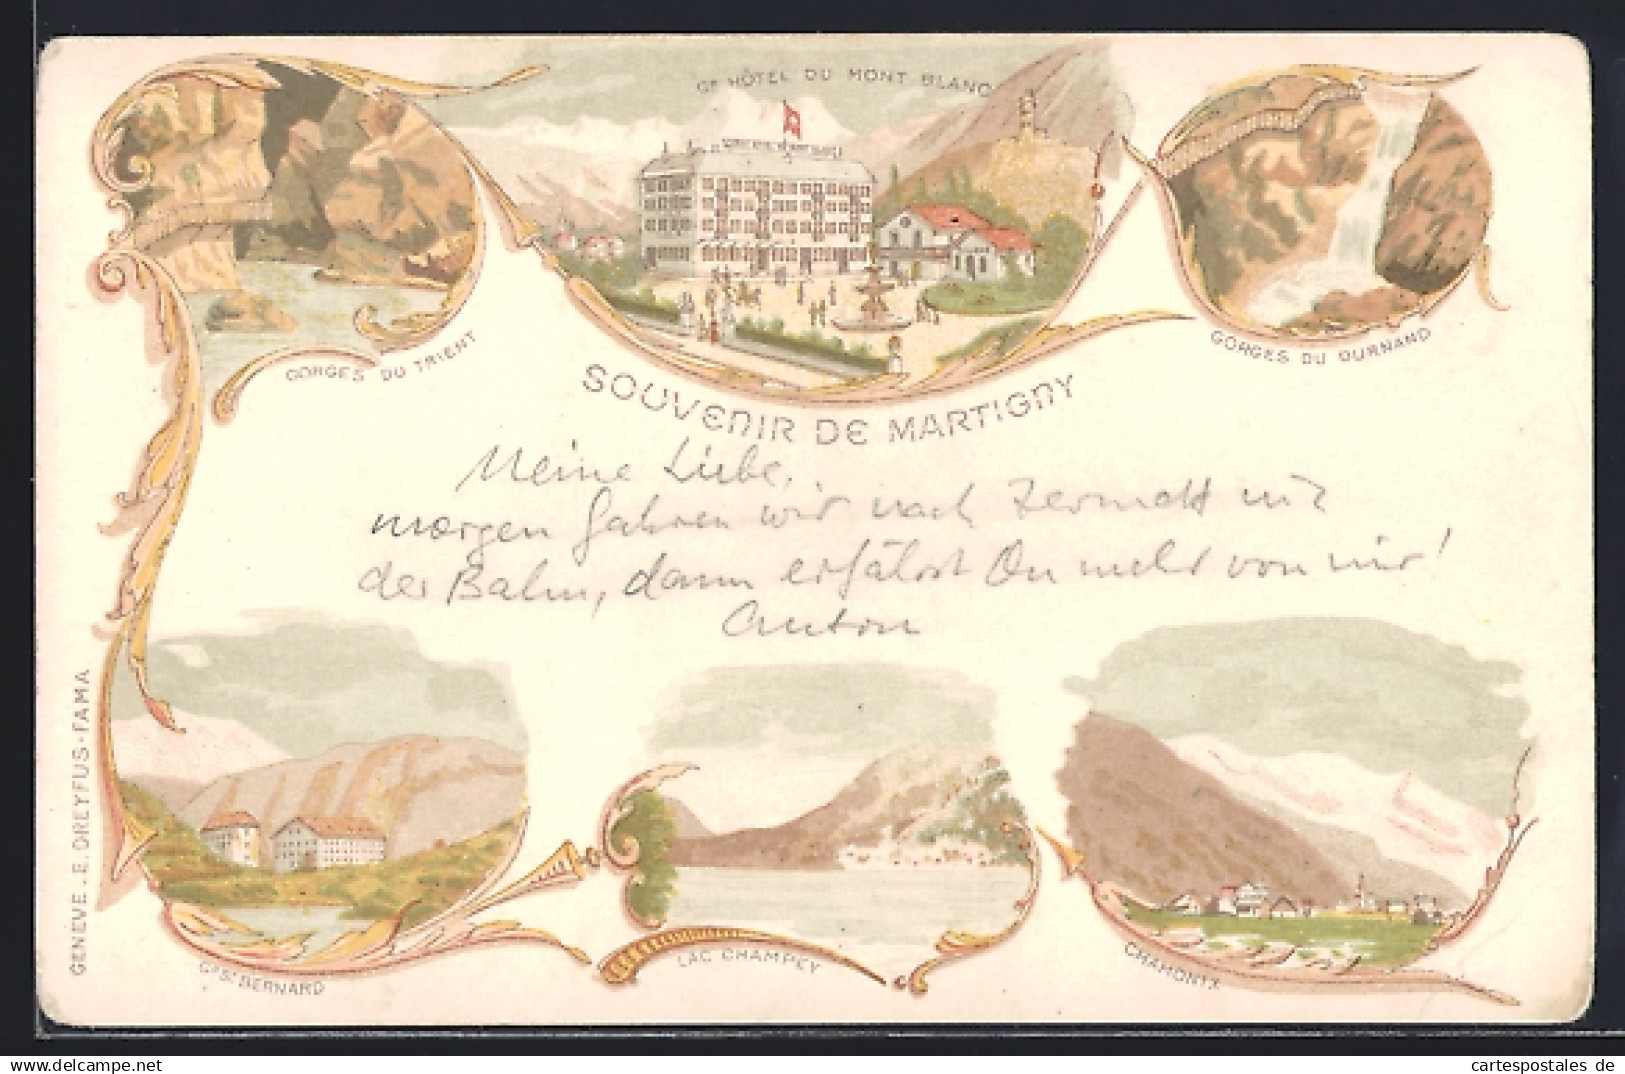 Gd HÔTEL DU MONT BLANC
GORGES DU TRIENT
GORGES DU DURNAND
SOUVENIR DE MARTIGNY
Meine Liebe,
morgen fahren wir nach Zermatt mit
der Bahn, dann erfährst Du mehr von mir!
Anton
GENÈVE. E. DREYFUS-FAMA
Gd St BERNARD
LAC CHAMPEY
CHAMONIX
www.delcampe.net
cartespostales de